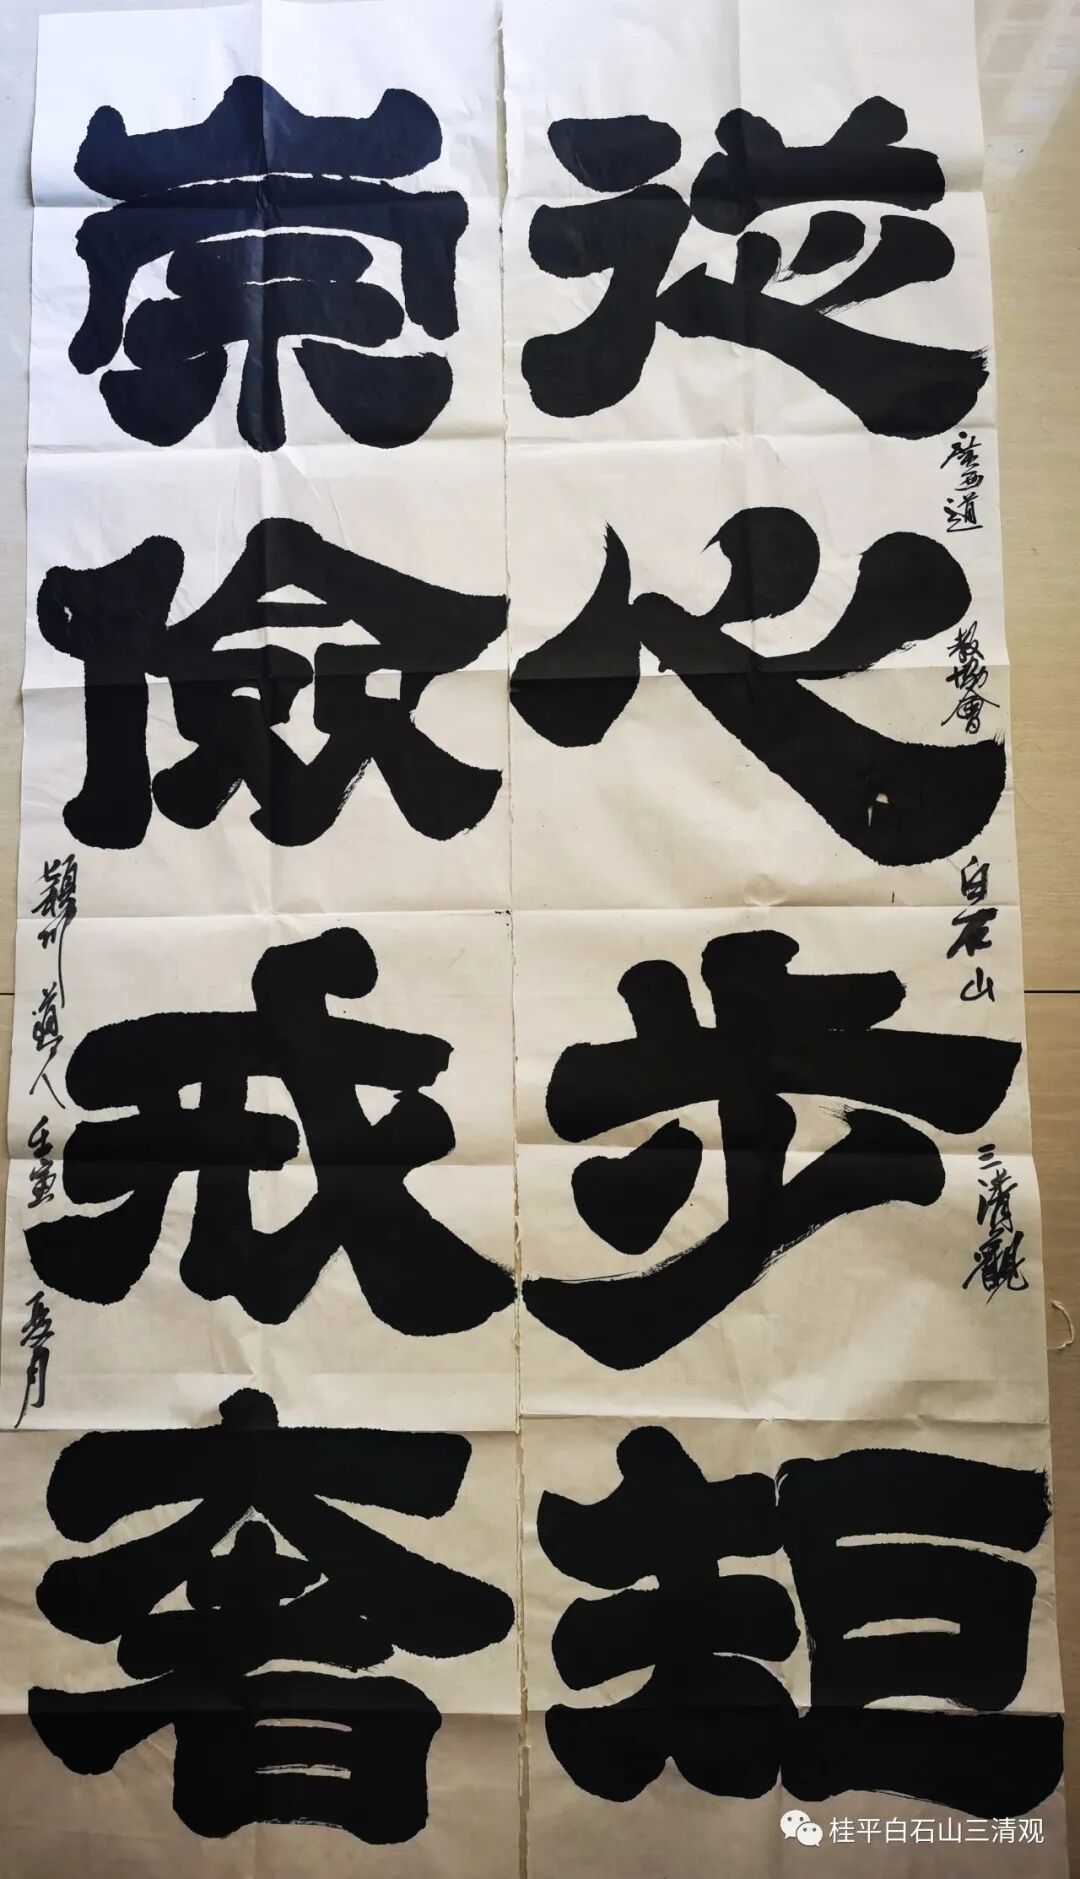 從心步矩
廣西道教協會白石山三清觀
崇儉戒奢
穎川道人壬寅夏月
桂平白石山三清观